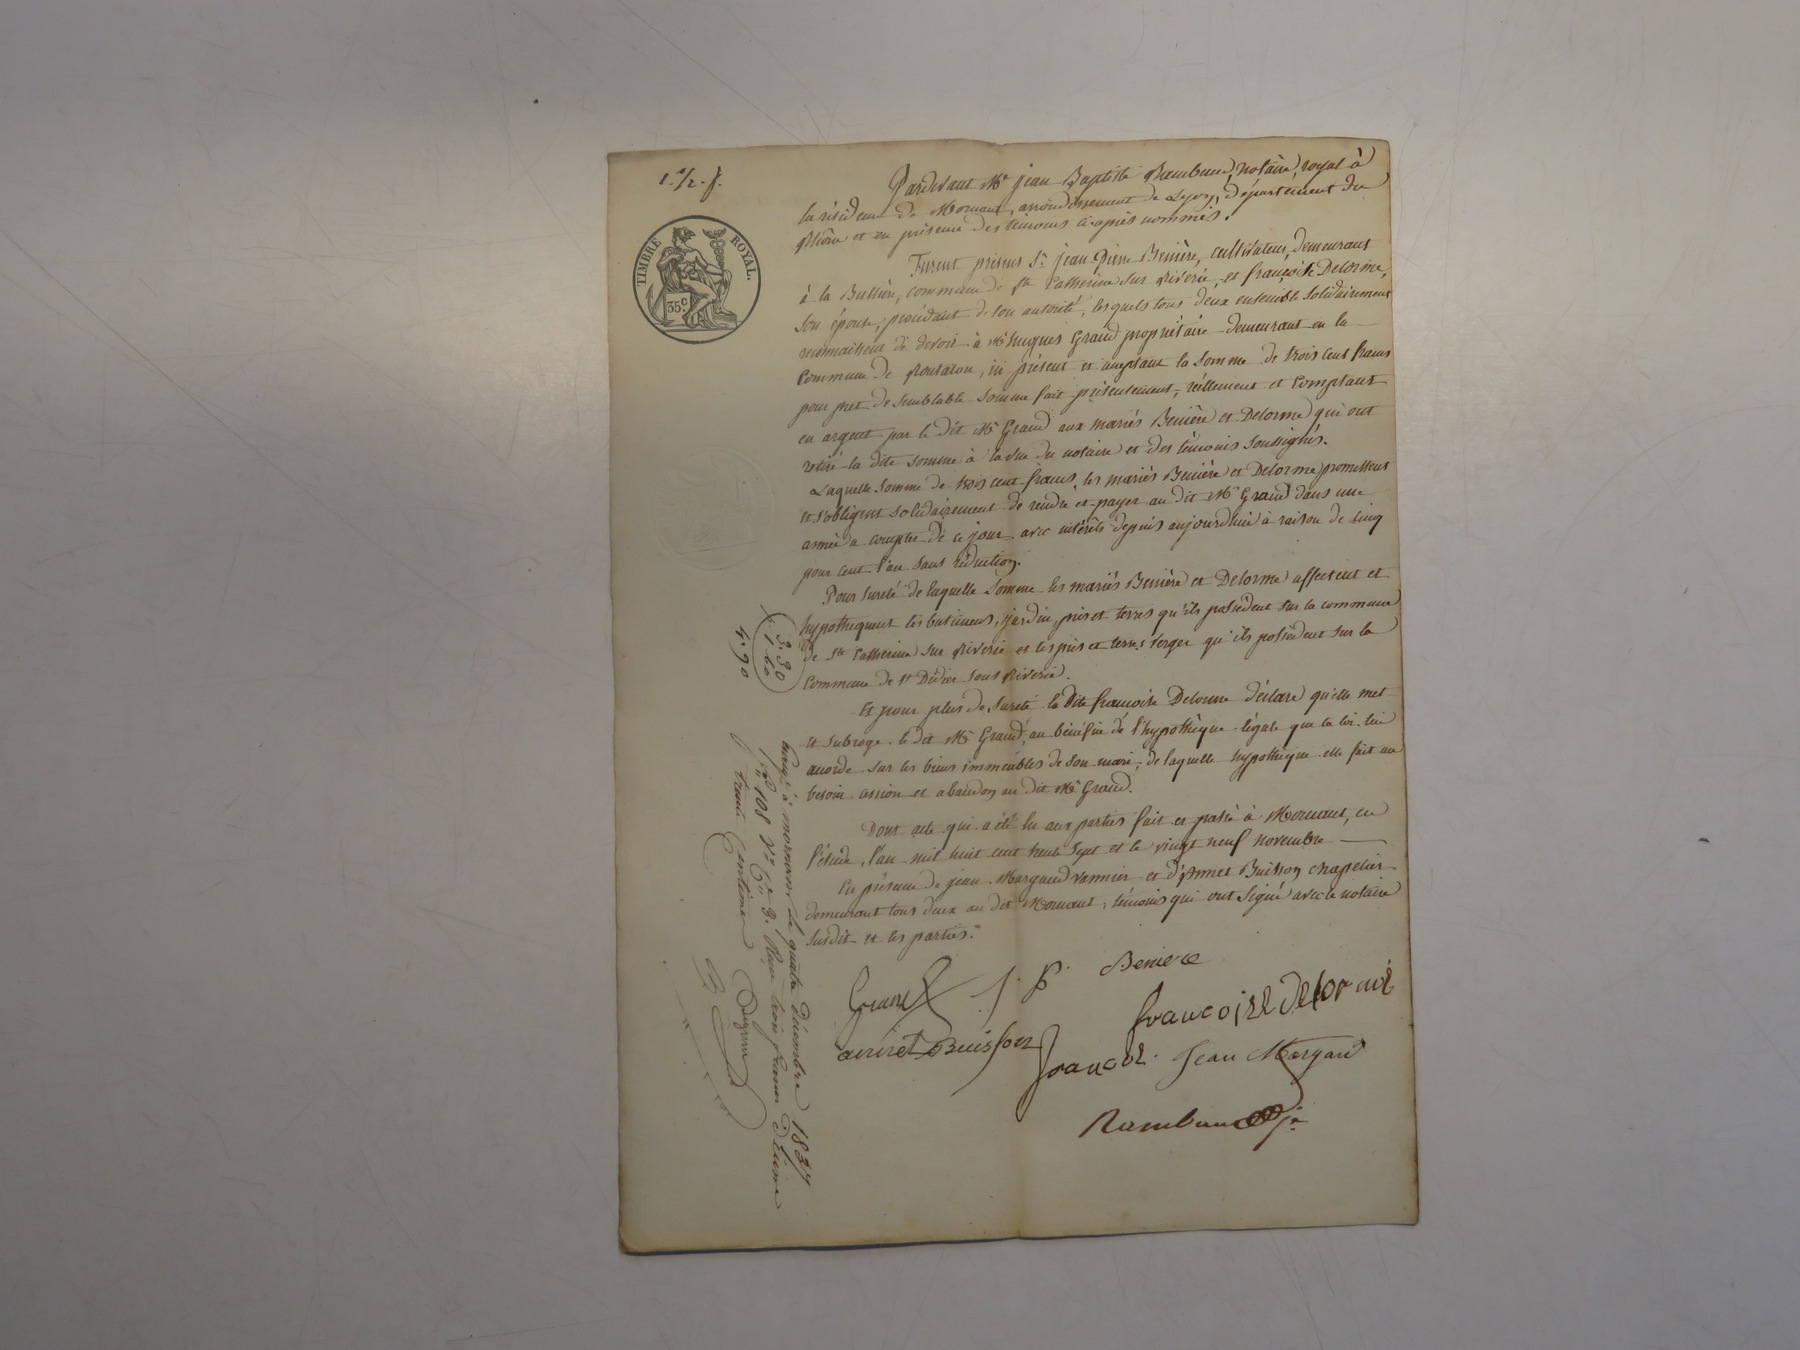 1. 1/2. f.
TIMBRE ROYAL.
35.c
Pardevant Me jean Baptiste Rambaud, notaire royal à
la résidence de Mornant, arrondissement de Lyon, département du
Rhône et en présence des témoins ci-après nommés.
Furent présens Sr. jean Pierre Benière, cultivateur, demeurant
à la Bussière, commune de Ste Catherine sur Riverie, et françoise Delorme,
son épouse, procédant de son autorité, lesquels tous deux ensemble solidairement
reconnaissent de devoir à Mr hugues Grand propriétaire demeurant en la
commune de Rontalon, ici présent et acceptant la somme de trois cent francs
pour pret de semblable somme fait présentement, réellement et comptant
en argent par le dit Mr Grand aux mariés Benière et Delorme qui ont
retiré la dite somme à la vue du notaire et des témoins soussignés.
Laquelle somme de trois cent francs, les mariés Benière et Delorme promettent
et s'obligent solidairement de rendre et payer au dit Mr Grand dans une
année a compter de ce jour avec intérêts depuis aujourdhui à raison de cinq
pour cent l'an sans réduction.
Pour sureté de laquelle somme les mariés Benière et Delorme affectent et
hypothequent les batimens, jardin, prés et terres qu'ils possèdent sur la commune
de Ste Catherine sur Riverie et les prés et terres verger qu'ils possèdent sur la
commune de St Didier sous Riverie.
Et pour plus de sureté la dite francoise Delorme déclare qu'elle met
et subroge le dit Mr Grand, au bénéfice de l'hypothèque légale que la loi lui
accorde sur les biens immeubles de son mari, de laquelle hypothèque elle fait au
besoin cession et abandon au dit Mr Grand.
Dont acte qui a été lu aux parties fait et passé à Mornant, en
l'étude, l'an mil huit cent trente sept et le vingt neuf novembre
En présence de jean Margaud vannier et d'Annet Buisson chapelier
demeurant tous deux au dit Mornant, témoins qui ont signé avec le notaire
susdit et les parties.
Grand J. P. Beniere
francoise delorme
annet Buisson francoi. Jean Margard
Rambaud
3. 30
1. 60
4. 90
à mornant le quatre décembre 1837
f° 108 R° C. 3. Reçu trois francs Dixième
trente centimes